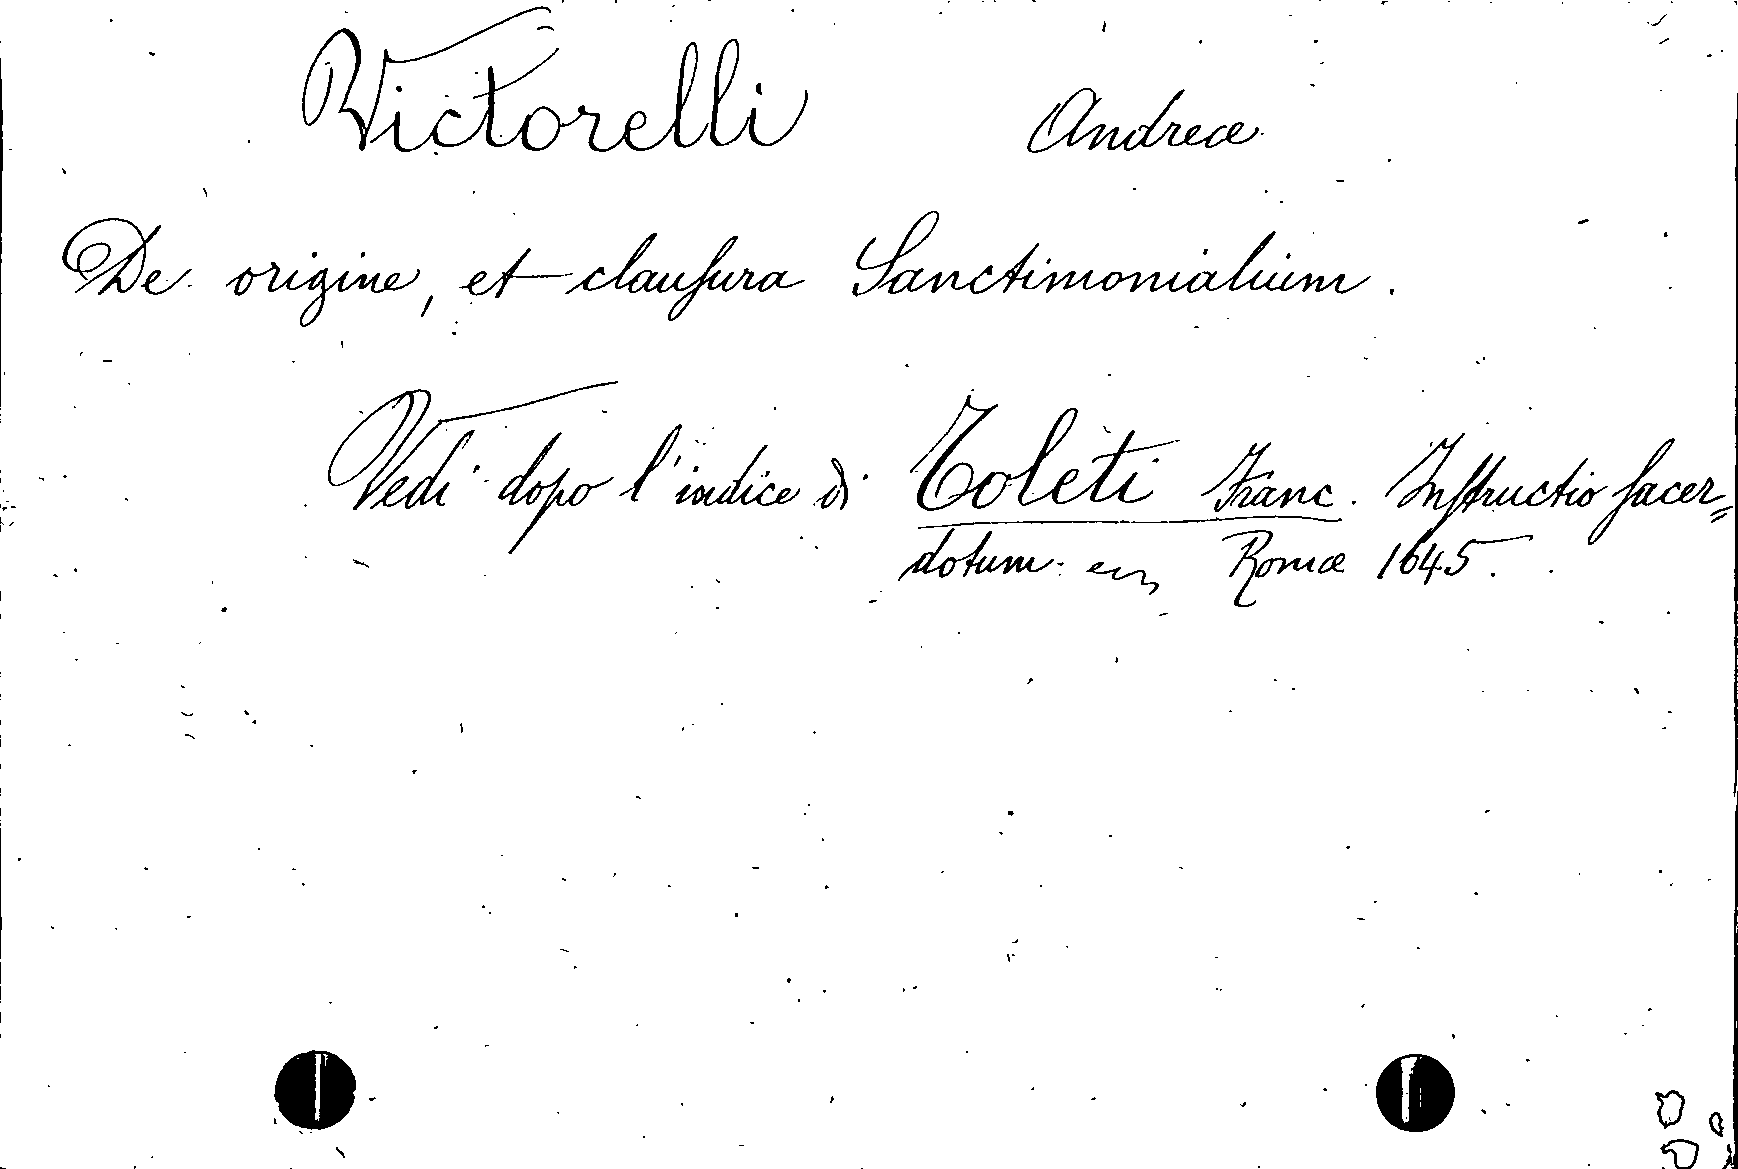 Victorelli Andreæ
De origine, et clauſura Sanctimonialium.
Vedi dopo l'indice di Toleti Franc. Inſtructio ſacer=
dotum Romæ 1645.